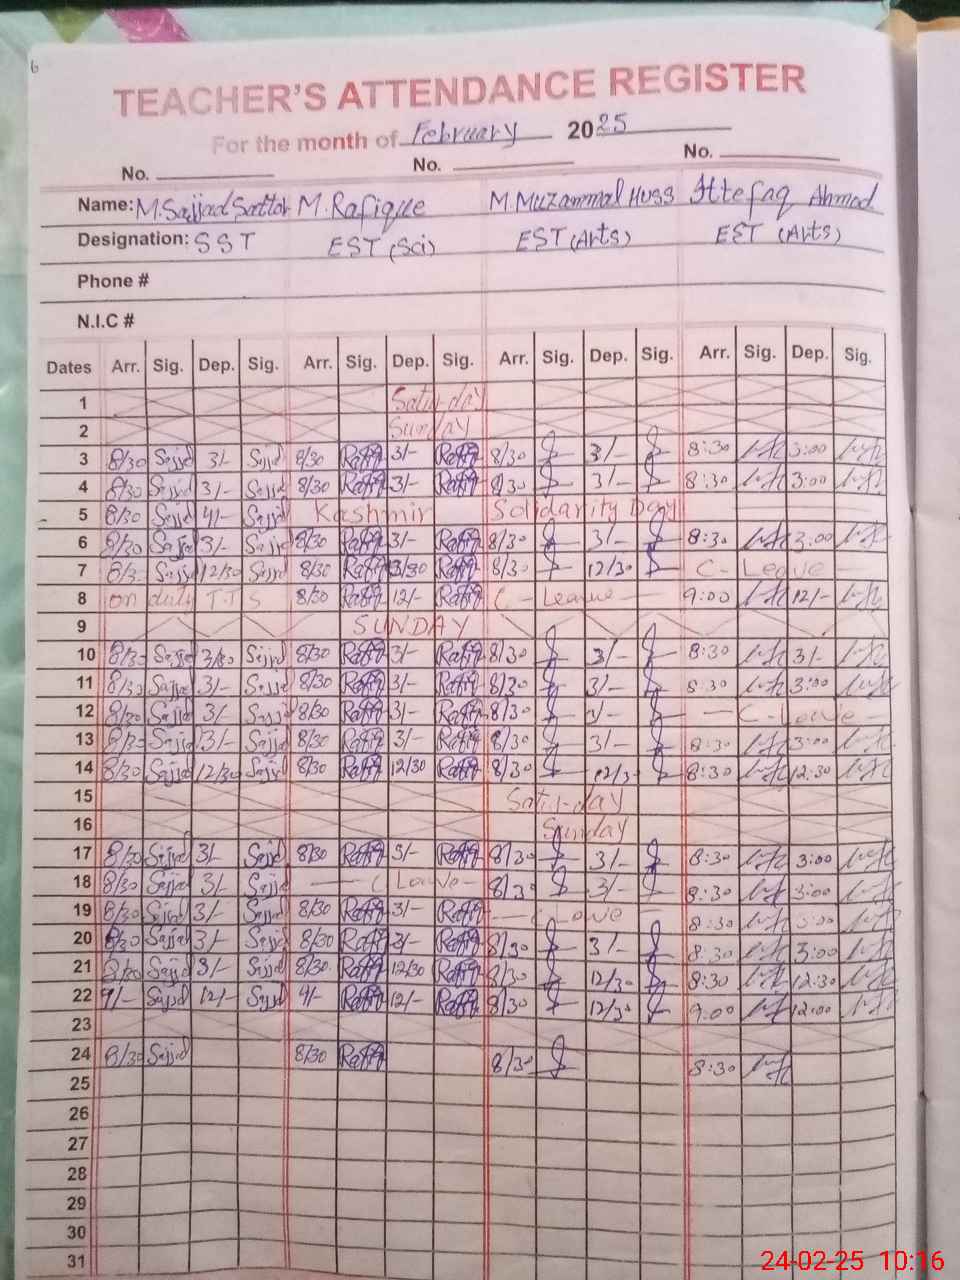 6
TEACHER'S ATTENDANCE REGISTER
For the month of February 2025
No. No. No.
Name: M. Sajjad Sattar M. Rafique M. Muzammal Huss Ittefaq Ahmad
Designation: SST EST (Sci) EST (Arts) EST (Arts)
Phone #
N.I.C #
Dates Arr. Sig. Dep. Sig. Arr. Sig. Dep. Sig. Arr. Sig. Dep. Sig. Arr. Sig. Dep. Sig.
1 Saturday
2 Sunday
3 8/30 Sajjad 3/- Sajjad 8/30 Rafiq 3/- Rafiq 8/30 3/- 8:30 3:00
4 8/30 Sajjad 3/- Sajjad 8/30 Rafiq 3/- Rafiq 8/30 3/- 8:30 3:00
5 8/30 Sajjad 4/- Sajjad Kashmir Solidarity Day
6 8/30 Sajjad 3/- Sajjad 8/30 Rafiq 3/- Rafiq 8/30 3/- 8:30 3:00
7 8/3 Sajjad 12/30 Sajjad 8/30 Rafiq Rafiq 8/30 12/30 C - Leave
8 on duty T.T.S 8/30 Rafiq 12/- Rafiq C - Leave 9:00 12/-
9 SUNDAY
10 8/30 Sajjad 3/30 Sajjad 8/30 Rafiq 3/- Rafiq 8/30 3/- 8:30 3/-
11 8/30 Sajjad 3/- Sajjad 8/30 Rafiq 3/- Rafiq 8/30 3/- 8:30 3:00
12 8/30 Sajjad 3/- Sajjad 8/30 Rafiq 3/- Rafiq 8/30 C - Leave
13 8/30 Sajjad 3/- Sajjad 8/30 Rafiq 3/- Rafiq 8/30 3/- 8:30 3:00
14 8/30 Sajjad 12/30 Sajjad 8/30 Rafiq 12/30 Rafiq 8/30 12/30 8:30 12:30
15 Saturday
16 Sunday
17 8/30 Sajjad 3/- Sajjad 8/30 Rafiq 3/- Rafiq 8/30 3/- 8:30 3:00
18 8/30 Sajjad 3/- Sajjad C Leave 8/30 3/- 8:30 3:00
19 8/30 Sajjad 3/- Sajjad 8/30 Rafiq 3/- Rafiq C Leave 8:30 3:00
20 8/30 Sajjad 3/- Sajjad 8/30 Rafiq 3/- Rafiq 8/30 3/- 8:30 3:00
21 8/30 Sajjad 3/- Sajjad 8/30 Rafiq 12/30 Rafiq 8/30 12/30 8:30 12:30
22 9/- Sajjad 12/- Sajjad 9/- Rafiq 12/- Rafiq 8/30 12/30 9:00 12:00
23
24 8/30 Sajjad 8/30 Rafiq 8/30 8:30
25
26
27
28
29
30
31
24-02-25 10:16